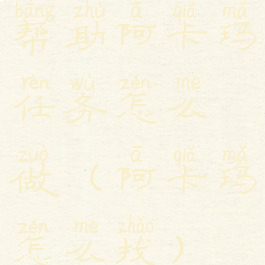 bāng zhù ā qiǎ mǎ
帮助阿卡玛
rèn wù zěn me
任务怎么
zuò ā qiǎ mǎ
做.(阿卡玛
zěn me zhǎo
怎么找)